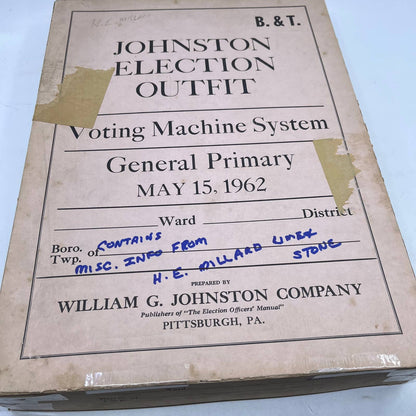 B. & T.
JOHNSTON
ELECTION
OUTFIT
Voting Machine System
General Primary
MAY 15, 1962
Ward District
Boro.
Twp. of
CONTAINS
MISC. INFO FROM
H. E. DILLARD LIMEX
STONE
PREPARED BY
WILLIAM G. JOHNSTON COMPANY
Publishers of "The Election Officers' Manual"
PITTSBURGH, PA.